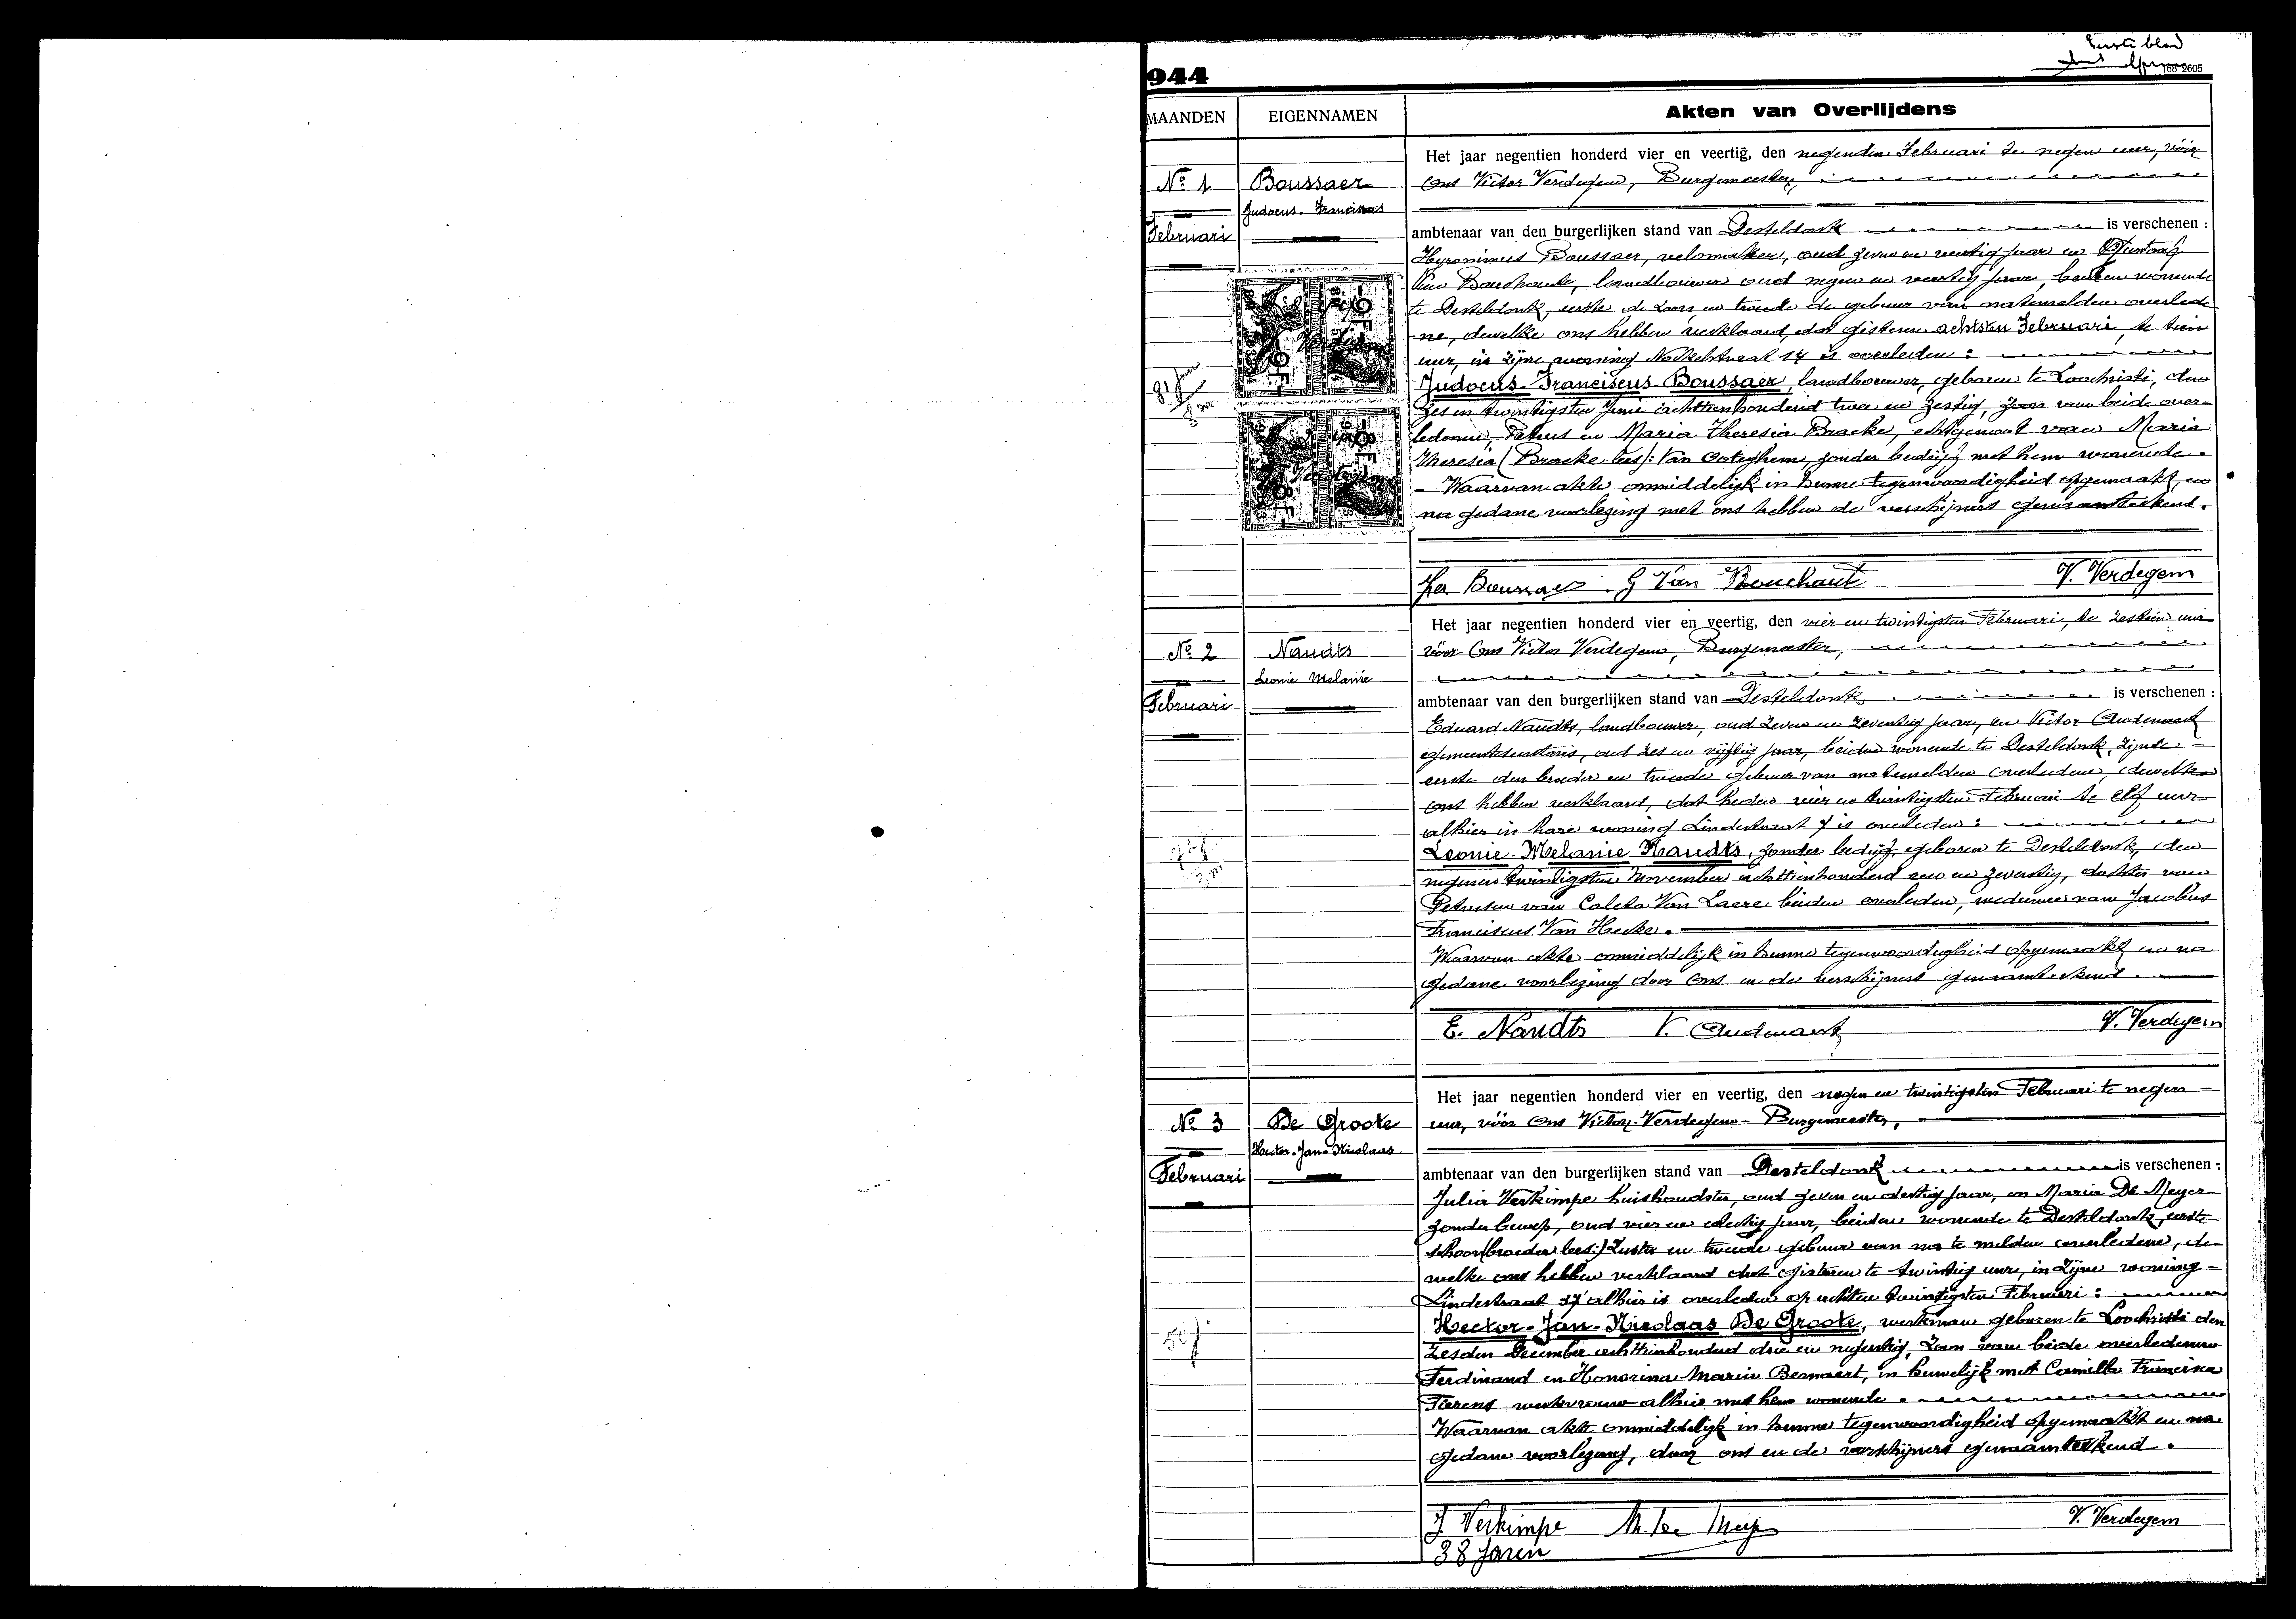 Eerste blad
944
168-2605
MAANDEN
EIGENNAMEN
Akten van Overlijdens
Nº 1
Boussaer
Judocus-Franciscus
Februari
Het jaar negentien honderd vier en veertig, den negenden Februari te negen uur, vóór
Ons Victor Verdegem, Burgemeester,
ambtenaar van den burgerlijken stand van Desteldonk is verschenen :
Hyronimus Boussaer, velomaker, oud zeven en veertig jaar en Gustaaf
Van Bouchaute, landbouwer oud negen en veertig jaar, beiden wonende
te Desteldonk, eerste de zoon, en tweede de gebuur van natemelden overlede
ne, dewelke ons hebben verklaard, dat gisteren achtsten Februari, te tien
uur, in zijne woning Nokkelstraat 14 is overleden :
Judocus-Franciscus-Boussaer, landbouwer, geboren te Loochristi, den
zes en twintigsten Juni achttienhonderd twee en zestig, zoon van beide over-
ledenen, Petrus en Maria Theresia Bracke, echtgenoot van Maria
Theresia (Bracke lees): Van Ooteghem, zonder bedrijf met hem wonende.
- Waarvan akte onmiddelijk in hunne tegenwoordigheid opgemaakt, en
na gedane voorlezing met ons hebben de verschijners genaamteekend.
81 jaar
8 m
9F
9F
8F
8F
Hr. Boussaer G Van Bouchaute V. Verdegem
Nº 2
Naudts
Leonie Melanie
Februari
Het jaar negentien honderd vier en veertig, den vier en twintigsten Februari, te zestien uur
vóór Ons Victor Verdegem, Burgemeester,
ambtenaar van den burgerlijken stand van Desteldonk is verschenen :
Eduard Naudts, landbouwer, oud zeven en zeventig jaar, en Victor Audenaert
gemeentesecretaris, oud zes en vijftig jaar, beiden wonende te Desteldonk, zijnde
eerste den broeder en tweede gebuur van natemelden overledene, dewelke
ons hebben verklaard, dat heden vier en twintigsten Februari te elf uur
alhier in hare woning Lindestraat 7 is overleden :
Leonie-Melanie Naudts, zonder bedrijf, geboren te Desteldonk, den
negenen twintigsten November achttienhonderd een en zeventig, dochter van
Petrus en van Coleta Van Laere beiden overleden, weduwe van Jacobus
Franciscus Van Hecke.
Waarvan akte onmiddelijk in hunne tegenwoordigheid opgemaakt en na
gedane voorlezing door Ons en de verschijners genaamteekend.
E. Naudts V. Audenaert V. Verdegem
Nº 3
De Groote
Hector-Jan-Nicolaas
Februari
Het jaar negentien honderd vier en veertig, den negen en twintigsten Februari te negen
uur, vóór Ons Victor Verdegem Burgemeester,
ambtenaar van den burgerlijken stand van Desteldonk is verschenen :
Julia Verkimpe huishoudster, oud zeven en dertig jaar, en Maria De Meyer
zonder beroep, oud vier en dertig jaar, beiden wonende te Desteldonk, eerste
schoon(broeder lees:) zuster en tweede gebuur van na te melden overledene, de-
welke ons hebben verklaard dat gisteren te twintig uur, in zijne woning
Lindestraat 37 alhier is overleden op achten twintigsten Februari :
Hector-Jan-Nicolaas De Groote, werkman geboren te Loochristi den
zesden December achttienhonderd drie en negentig, zoon van beide overledenen
Ferdinand en Honorina Maria Bernaert, in huwelijk met Camilla Francisca
Tierens werkvrouw alhier met hem wonende.
Waarvan akte onmiddelijk in hunne tegenwoordigheid opgemaakt en na
gedane voorlezing, door ons en de verschijners genaamteekend.
50 j
J. Verkimpe M. De Meyer V. Verdegem
38 Jaren